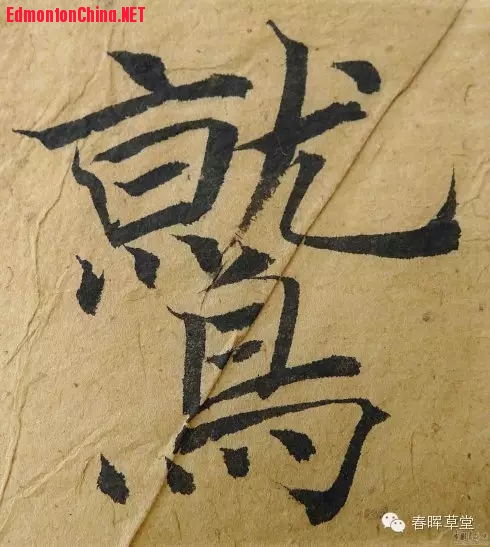 EdmontonChina.NET
鷲
春晖草堂